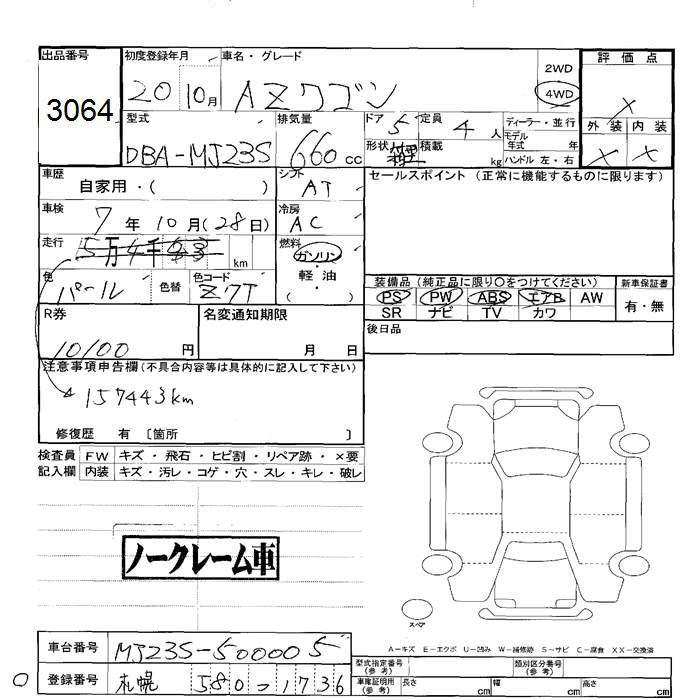 出品番号
3064
初度登録年月
20 10月
車名・グレード
AZワゴン
2WD
4WD
評価点
×
外装 内装
× ×
型式
DBA-MJ23S
排気量
660 cc
ドア 5
定員 4 人
形状
積載 kg
ディーラー・並行
モデル年式 年
ハンドル 左・右
車歴
自家用・( )
シフト
AT
セールスポイント (正常に機能するものに限ります)
車検
7年 10月(28日)
冷房
AC
走行
km
燃料
ガソリン
軽・油
( )
色
パール
色替
色コード
Z7T
装備品(純正品に限り○をつけてください)
PS PW ABS エアB AW
SR ナビ TV カワ
新車保証書
有・無
後日品
R券
10100 円
名変通知期限
月 日
注意事項申告欄(不具合内容等は具体的に記入して下さい)
157443km
修復歴 有 〔箇所 〕
検査員記入欄
FW キズ・飛石・ヒビ割・リペア跡・×要
内装 キズ・汚レ・コゲ・穴・スレ・キレ・破レ
ノークレーム車
スペア
A-キズ E-エクボ U-凹み W-補修跡 S-サビ C-腐食 XX-交換済
車台番号
MJ23S-500005
登録番号
札幌 580-1736
型式指定番号(参考)
類別区分番号(参考)
車庫証明用(参考)
長さ cm
幅 cm
高さ cm